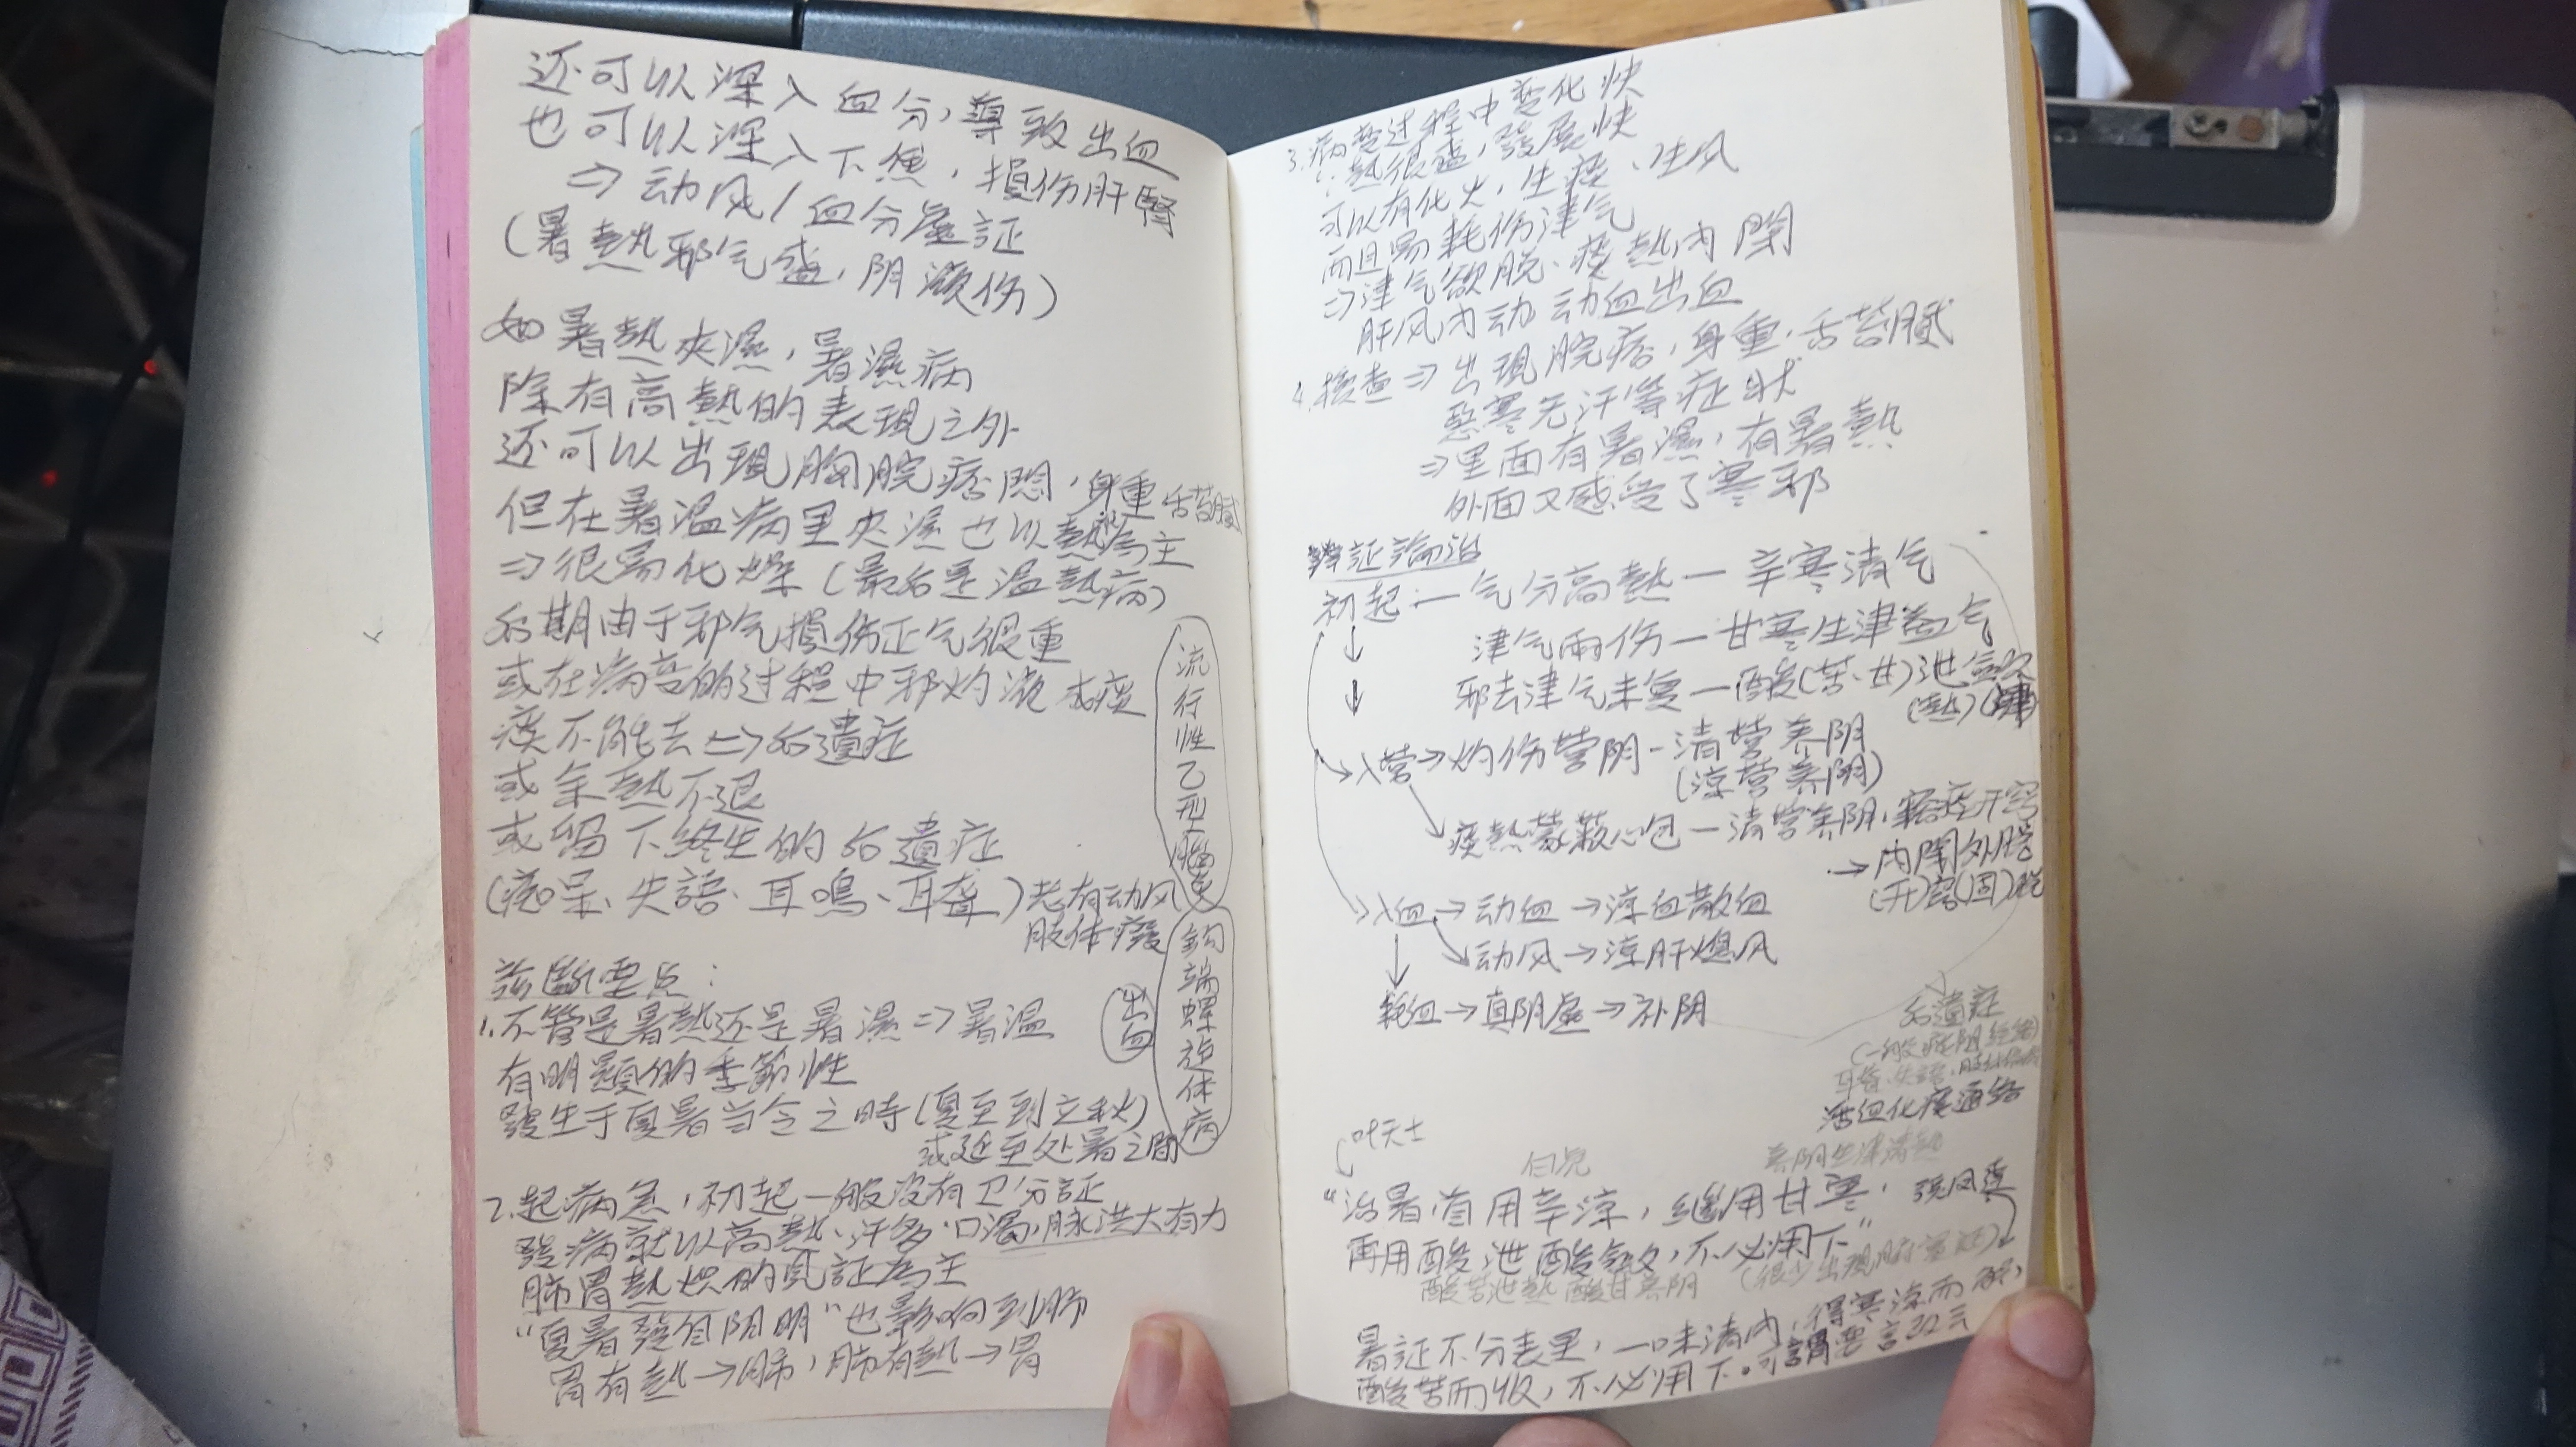 还可以深入血分，導致出血
也可以深入下焦，損伤肝腎
⇒ 动风/血分虛証
(暑熱邪气盛，阴液伤)
如暑熱夾濕，暑濕病
除有高熱的表現之外
还可以出現胸脘痞悶，身重舌苔膩
但在暑温病里夾濕也以熱為主
⇒很易化燥(最后是温熱病)
后期由于邪气損伤正气很重
或在病变的过程中邪灼液成痰
痰不能去⇒后遺症
或余熱不退
或留下終生的后遺症
(痴呆、失語、耳鳴、耳聋)老有动风
肢体癈
流行性乙型腦炎
鈎端螺旋体病
出血
診斷要点：
1.不管是暑熱还是暑濕⇒暑温
有明顯的季節性
發生于夏暑当令之時(夏至到立秋)
或延至处暑之間
2.起病急，初起一般没有卫分証
發病就以高熱、汗多、口渴，脉洪大有力
肺胃熱熾的見証為主
“夏暑發自阳明”也影响到肺
胃有熱→肺，肺有熱→胃
3.病变过程中变化快
∵熱很盛，發展快
可以有化火，生痰、生风
而且易耗伤津气
⇒津气欲脱、痰熱内閉
肝风内动 动血出血
4.檢查⇒出現脘痞，身重，舌苔膩
惡寒无汗等症狀
⇒里面有暑濕，有暑熱
外面又感受了寒邪
辨証論治
初起：一气分高熱一辛寒清气
津气兩伤一甘寒生津益气
邪去津气未复一酸(苦、甘)泄(熱)斂(津)
→入营→灼伤营阴-清营养阴
(涼营养阴)
痰熱蒙蔽心包一清营养阴，豁痰开窍
→内閉外脱
(开)窍(固)脱
→入血→动血→涼血散血
动风→涼肝熄风
耗血→真阴虛→补阴
后遺症
活血化痰通络
叶天士
白虎
养阴生津清熱
“治暑首用辛涼，继用甘寒，張凤逵
再用酸泄酸斂，不必用下”
酸苦泄熱 酸甘养阴
暑証不分表里，一味清内，得寒涼而解，
酸苦而收，不必用下。可謂要言不烦